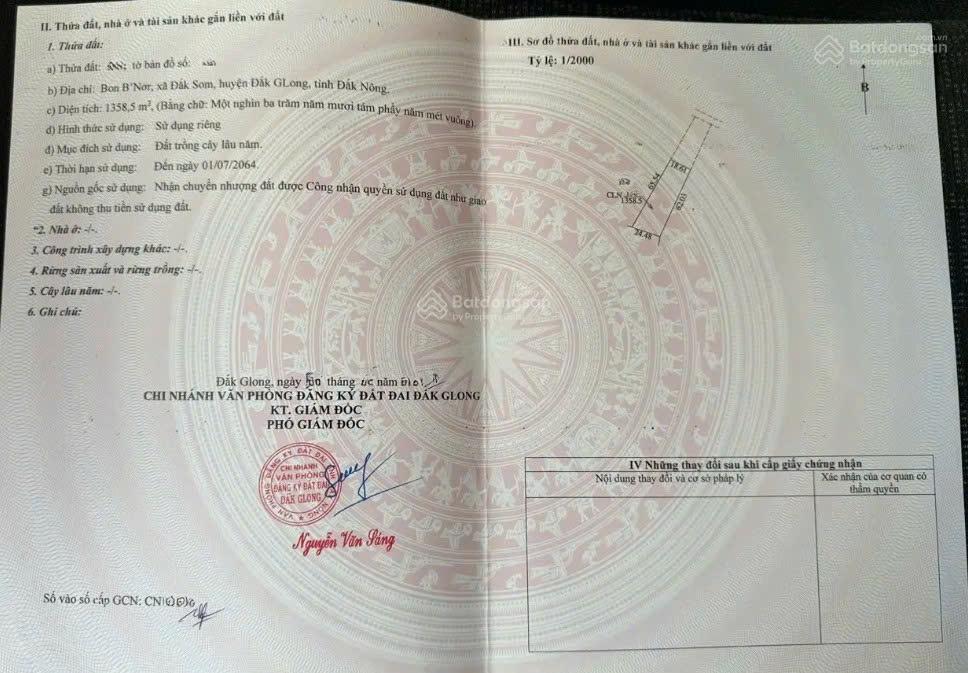 II. Thửa đất, nhà ở và tài sản khác gắn liền với đất
1. Thửa đất:
a) Thửa đất: tờ bản đồ số:
b) Địa chỉ: Bon B'Nơr, xã Đắk Som, huyện Đắk GLong, tỉnh Đắk Nông.
c) Diện tích: 1358,5 m², (Bằng chữ: Một nghìn ba trăm năm mươi tám phẩy năm mét vuông).
d) Hình thức sử dụng: Sử dụng riêng
đ) Mục đích sử dụng: Đất trồng cây lâu năm.
e) Thời hạn sử dụng: Đến ngày 01/07/2064.
g) Nguồn gốc sử dụng: Nhận chuyển nhượng đất được Công nhận quyền sử dụng đất như giao
đất không thu tiền sử dụng đất.
2. Nhà ở: -/-.
3. Công trình xây dựng khác: -/-.
4. Rừng sản xuất và rừng trồng: -/-.
5. Cây lâu năm: -/-.
6. Ghi chú:
Đắk Glong, ngày tháng năm
CHI NHÁNH VĂN PHÒNG ĐĂNG KÝ ĐẤT ĐAI ĐẮK GLONG
KT. GIÁM ĐỐC
PHÓ GIÁM ĐỐC
VĂN PHÒNG ĐĂNG KÝ ĐẤT ĐAI
CHI NHÁNH
VĂN PHÒNG
ĐĂNG KÝ ĐẤT ĐAI
ĐẮK GLONG
Nguyễn Văn Sáng
Số vào sổ cấp GCN: CN
III. Sơ đồ thửa đất, nhà ở và tài sản khác gắn liền với đất
Tỷ lệ: 1/2000
Batdongsan.com.vn
by PropertyGuru
B
18.61
65.54
CLN
1358.5
62.03
24.48
Batdongsan
by PropertyGuru
IV Những thay đổi sau khi cấp giấy chứng nhận
Nội dung thay đổi và cơ sở pháp lý
Xác nhận của cơ quan có
thẩm quyền